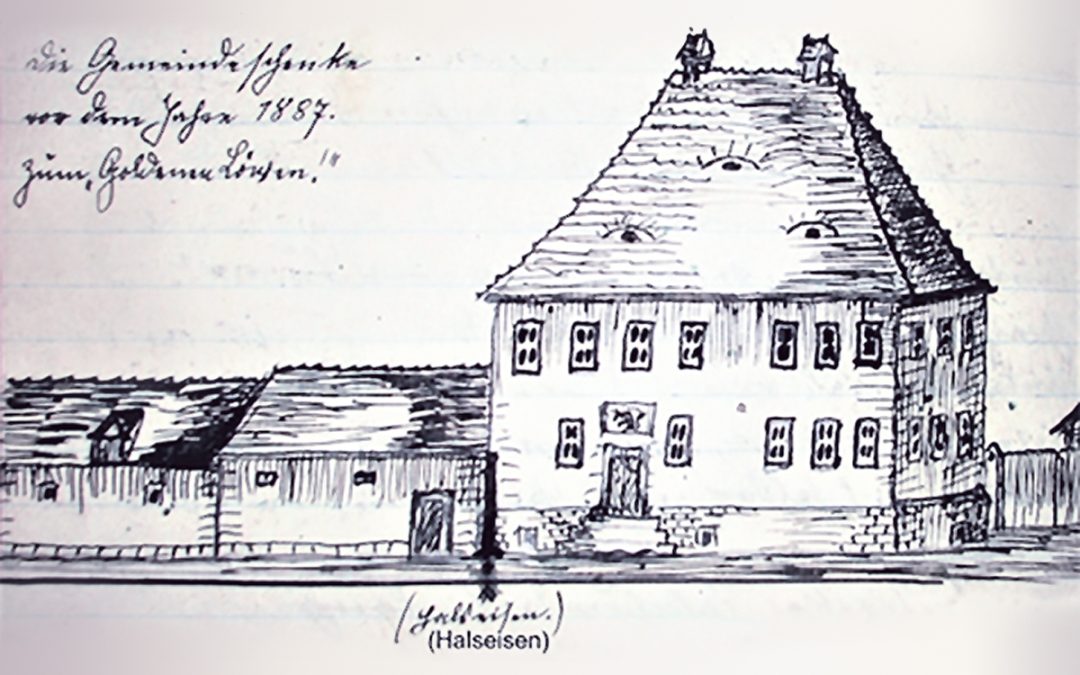 Die Gemeindeschenke
vor dem Jahre 1887.
zum „Goldenen Löwen!"
(Halseisen.)
(Halseisen)